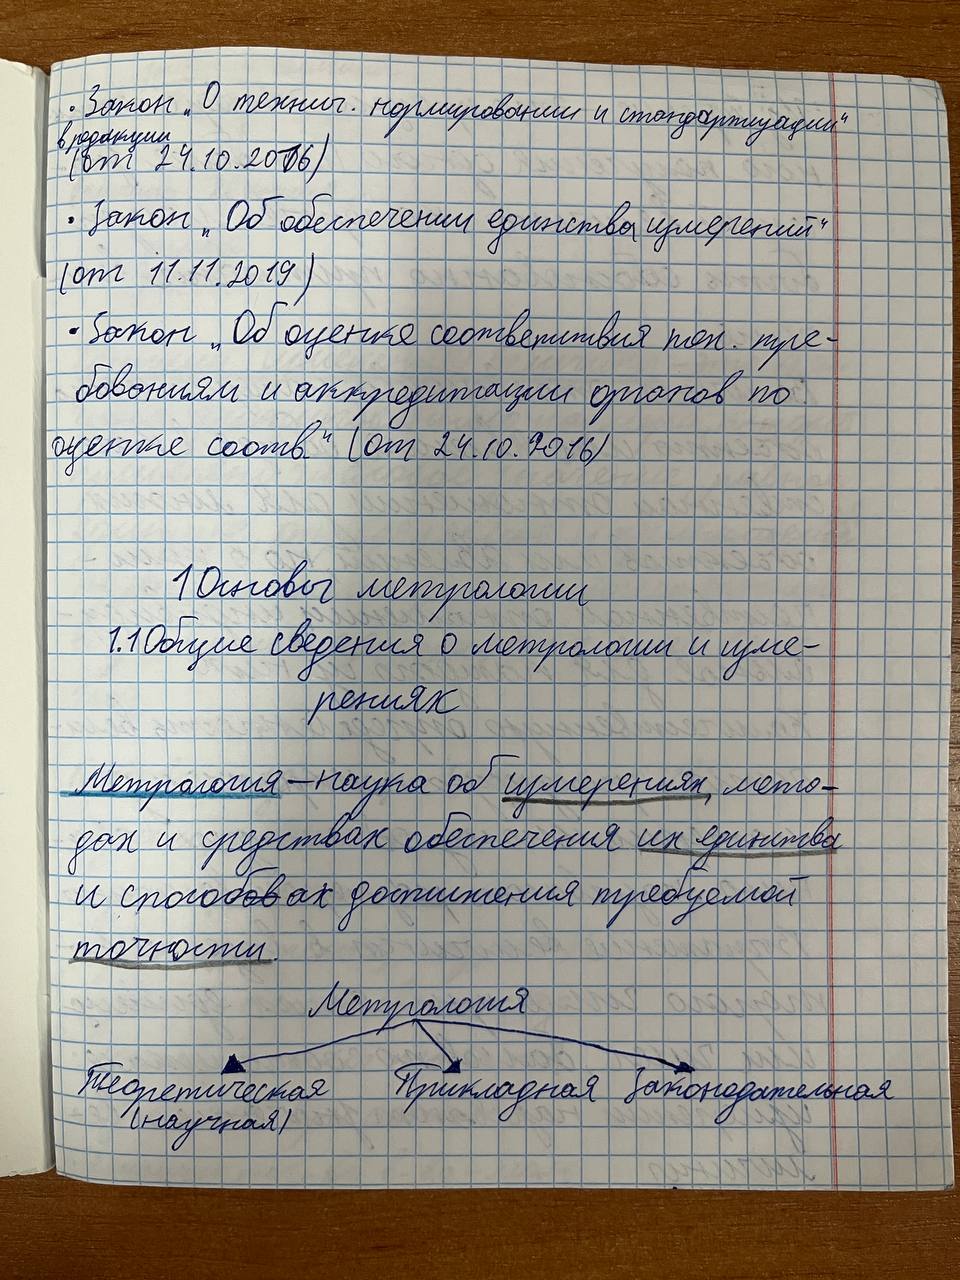 · Закон „О технич. нормировании и стандартизации“
в редакции
(от 24.10.2016)
· Закон „Об обеспечении единства измерений“
(от 11.11.2019)
· Закон „Об оценке соответствия тех. тре-
бованиям и аккредитации органов по
оценке соотв.“ (от 24.10.2016)
1 Основы метрологии
1.1 Общие сведения о метрологии и изме-
рениях
Метрология – наука об измерениях, мето-
дах и средствах обеспечения их единства
и способах достижения требуемой
точности.
Метрология
Теоретическая Прикладная Законодательная
(научная)